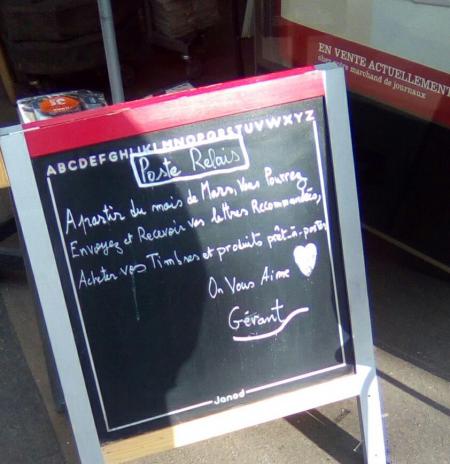 EN VENTE ACTUELLEMENT
chez votre marchand de journaux
ABCDEFGHIJKLMNOPQRSTUVWXYZ
Poste Relais
A partir du mois de Mars, Vous Pourrez
Envoyez et Recevoir vos lettres Recommandées,
Acheter vos Timbres et produits prêt-à-poster
On Vous Aime
Gérant
Janod